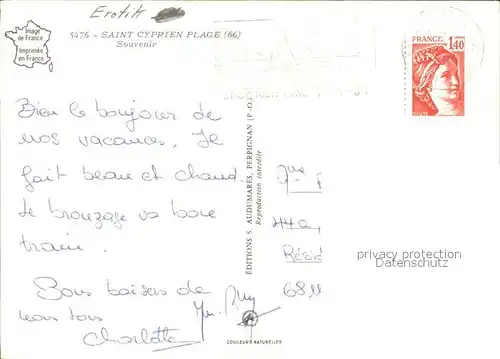 Erotik
3476 - SAINT CYPRIEN PLAGE (66)
Souvenir
Image
de France
Imprimée
en France
FRANCE
1,40
Bien le bonjour de
nos vacances. Il
fait beau et chaud.
le bronzage va bon
train.
Bons baisers de
nous tous
Charlotte
ÉDITIONS S. AUDUMARES, PERPIGNAN (P.-O.)
Reproduction interdite
44a,
Résid
68
privacy protection
Datenschutz
COULEURS NATURELLES